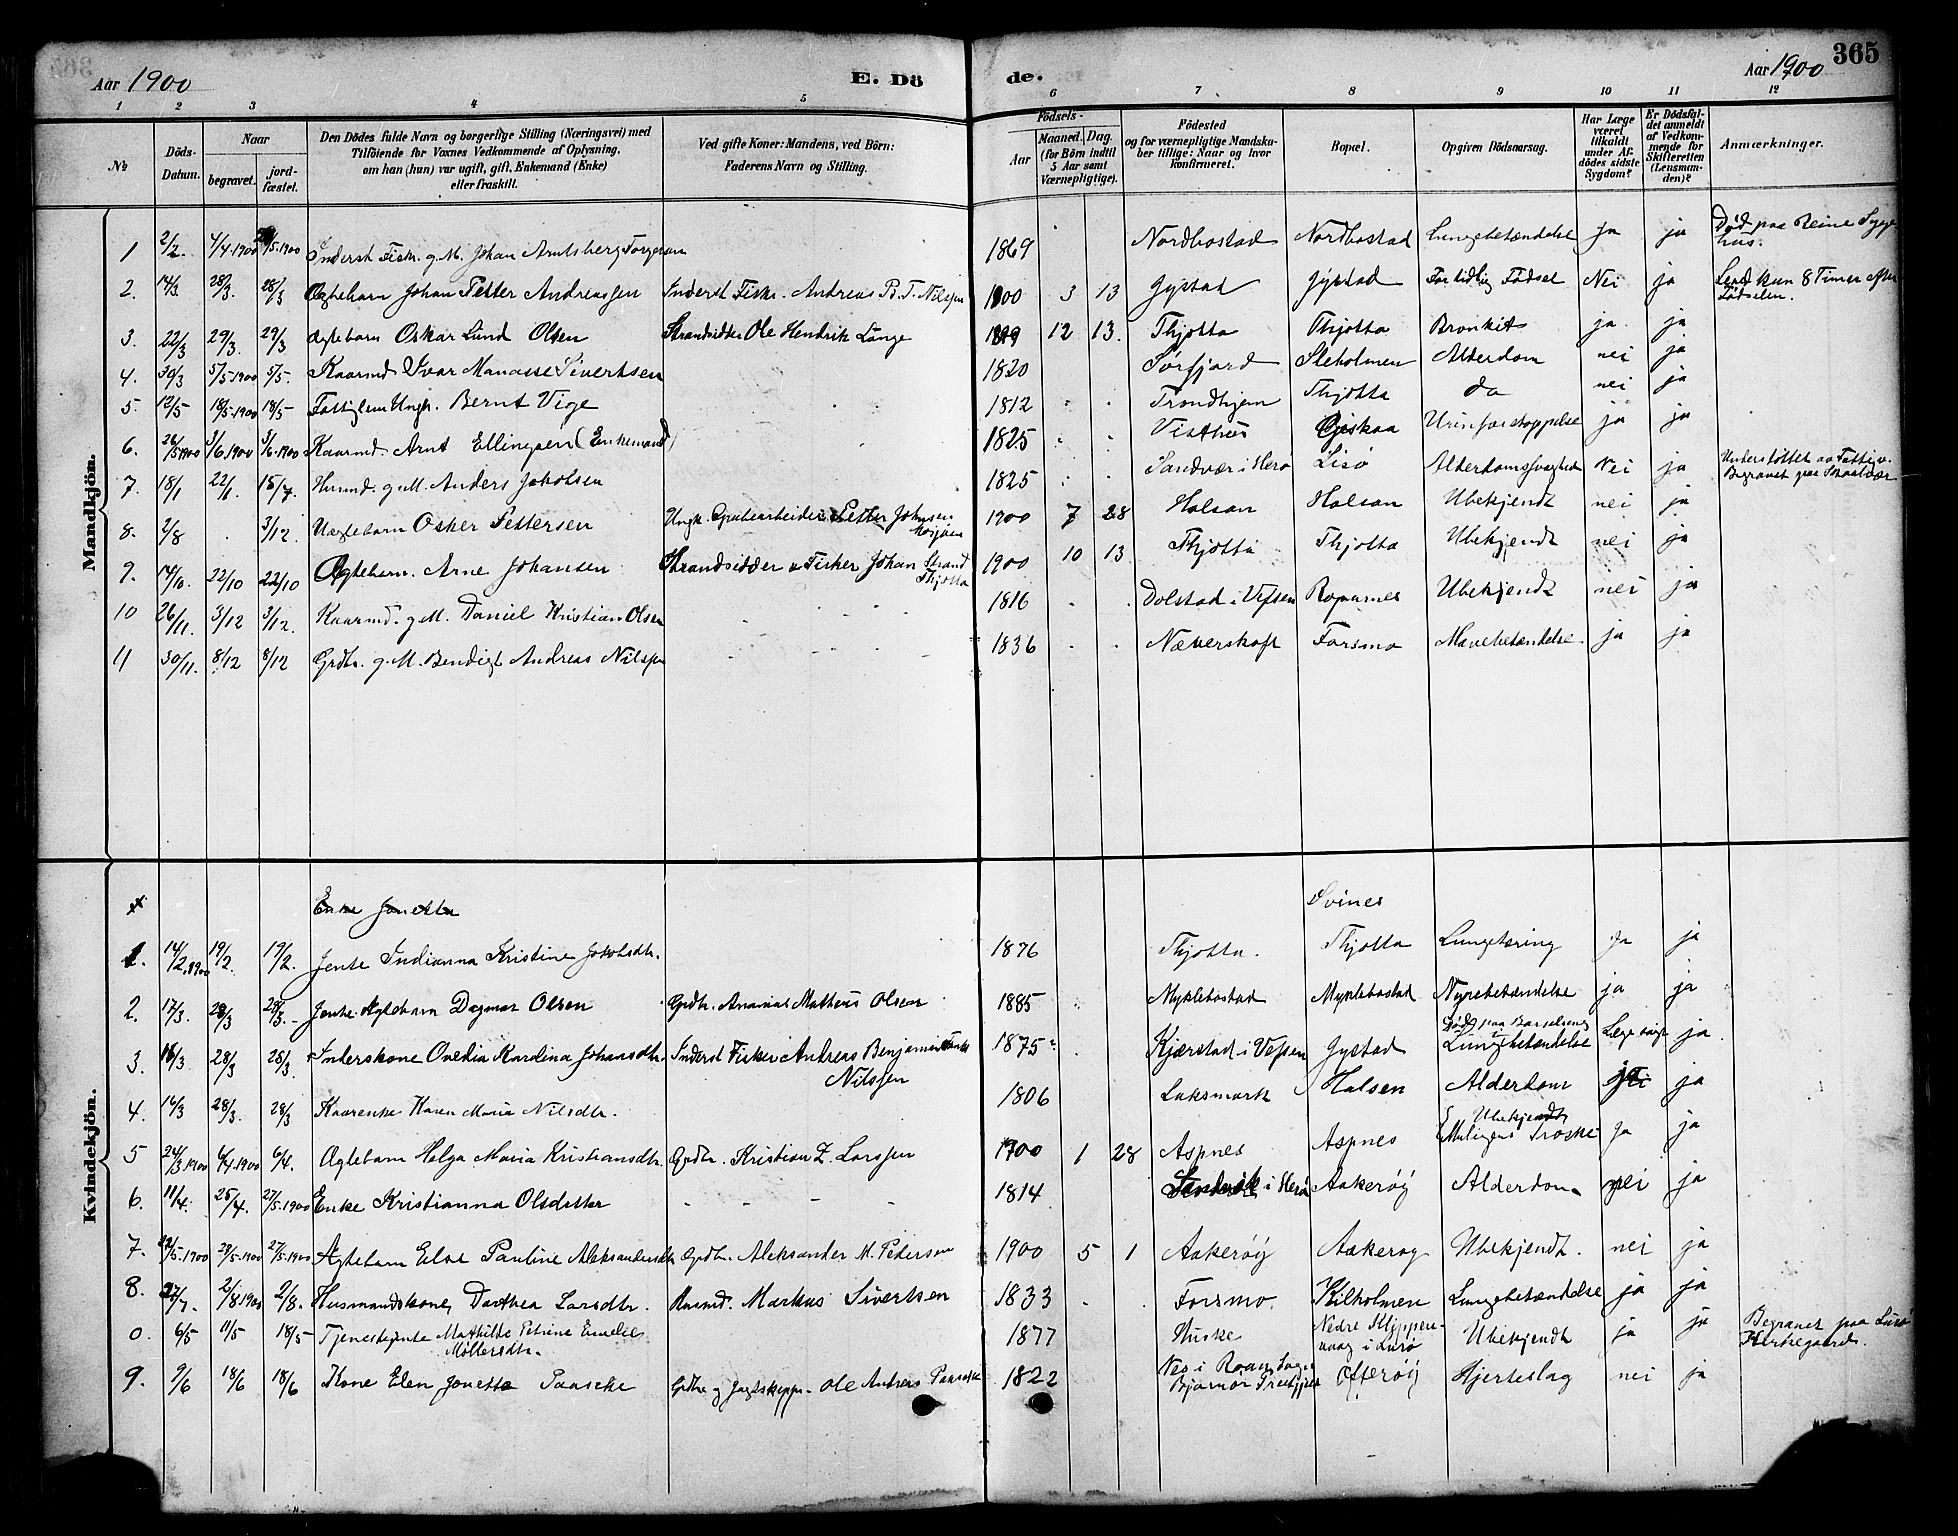 Aar 1900
E. Dö
de.
Aar 1900
365
1 2 3 4 5 6 7 8 9 10 11 12
№
Döds-Datum.
Naar
begravet.
jord-fæstet.
Den Dödes fulde Navn og borgerlige Stilling (Næringsvei) med
Tilföiende for Voxnes Vedkommende af Oplysning,
om han (hun) var ugift, gift, Enkemand (Enke)
eller fraskilt.
Ved gifte Koner: Mandens, ved Börn:
Faderens Navn og Stilling.
Födsels-
Aar
Maaned. Dag.
(for Börn indtil
5 Aar samt
Værnepligtige).
Födested
og for værnepligtige Mandska-
ber tillige: Naar og hvor
konfirmeret.
Bopæl.
Opgiven Dödsaarsag.
Har Læge
været
tilkaldt
under Af-
dödes sidste
Sygdom?
Er Dödsfal-
det anmeldt
af Vedkom-
mende for
Skifteretten
(Lensman-
den)?
Anmærkninger.
Mandkjön.
1 2/2. 4/4.1900 /5.1900 Inderst Fisk. g.M. Johan Arntsberg Torgersen 1869 Nordbostad Nordbostad Lungebetændelse ja ja Död paa Reine Syge
hus.
2. 14/3. 28/3. 28/3 Ægtebarn Johan Petter Andreassen Inderst Fisker. Andreas B. T. Nilssen 1900 3 13 Gystad Gystad For tidlig Födsel Nei ja Levd kun 8 Timer efter
Födselen.
3. 22/3 29/3. 29/3 Ægtebarn Oskar Lund Olsen Strandsidder Ole Hendrik Lange 1899 12 13. Thjotta Thjotta Bronkit ja. ja
4. 30/3 5/5.1900 5/5. Kaarmd Ivar Manasse Sivertsen 1820 Sørfjord Sleholmen Alderdom nei ja
5. 12/5 18/5.1900 18/5 Fattiglem Ungk. Bernt Vige 1812 Trondhjem Thjotta do nei ja
6. 26/5 1900 3/6.1900 3/6.1900 Kaarmd. Arnt Ellingsen (Enkemand) 1825 Visthus Giskaa Urinforstoppelse ja ja
7. 18/1 22/1. 15/7. Husmd. g.M. Anders Jakobsen 1825 Sandvær i Herø Lisø Alderdomssvaghed Nei ja Understøttet av Fattigv.
Begravet paa Skaalvær
8. 2/8 . 3/12. Uægtebarn Osker Pettersen Ungk. Grubearbeider Petter Johnsen
Mosjøen 1900 7 28 Halsan Halsan Ubekjendt nei ja
9. 14/10. 22/10 22/10 Ægtebarn. Arne Johansen Strandsidder & Fisker Johan Strand
Thjotta 1900 10 13 Thjotta Thjotta Ubekjendt nei ja
10 26/11. 3/12 3/12. Kaarmd. g.M. Daniel Kristian Olsen 1816 Dolstad i Vefsen Ramnes Ubekjendt nei ja
11 30/11. 8/12 8/12 Grdbr. g.M. Bendigt Andreas Nilssen 1836 Næverskoft Forsmo Mavebetændelse. ja ja
Kvindekjön.
Enke Jonetta Svines
1. 14/2.1900 19/2. 19/2. Jente Indianna Kristine Jakobsdtr. 1876 Thjotta. Thjotta Lungetæring ja ja
2. 17/3. 28/3 28/3. Jente Ægtebarn Dagmar Olsen Grdbr. Ananias Matheus Olsen 1885 Myklebostad Myklebostad Nyrebetændelse ja ja
3. 18/3 28/3 28/3. Inderskone Ovedia Kardina Johansdtr. Inderst Fisker Andreas Benjamin
Nilssen 1875 Kjærstad i Vefsen Gystad Död paa Barselseng
Lungebetændelse Læge søgt ja
4. 16/3 28/3. 28/3 Kaarenke Karen Maria Nilsdtr. 1806 Laksmark Halsen Alderdom ja
5 24/3 1900 6/4.1900 6/4. Ægtebarn Helga Maria Kristiansdtr. Grdbr. Kristian Z. Larssen 1900 1 28 Aspnes Aspnes Ubekjendt
Trøske ja ja
6. 11/4. 25/4. 27/5.1900 Enke Kristianna Olsdatter - - - 1814 i Herø Aakerøy Alderdom nei ja
7. 22/5.1900 28/5.1900 27/5.1900 Ægtebarn Else Pauline Aleksandersdtr. Grdbr. Aleksander M. Pedersen 1900 5 1 Aakerøy Aakerøy Ubekjendt. nei ja
8. 27/7. 2/8.1900 2/8. Husmandskone Dorthea Larsdtr. Husmd. Markus Sivertsen 1833 Forsmo. Kilholmen Lungebetændelse ja ja
0. 6/5 11/5 18/5 Tjenestejente Mathilde Petrine Emelie
Möllersdtr. 1877 Huske Nedre Klippen-
vaag i Lurø Ubekjendt ja ja Begravet paa Lurø
Kirkegaard.
9. 9/6 18/6 18/6 Kone Elen Jonette Paasche Grdbr. og Jagtskipp. Ole Andreas Paasche 1822 Nes i Roan Sogn
Bjørnør Offerøy Hjerteslag nei ja